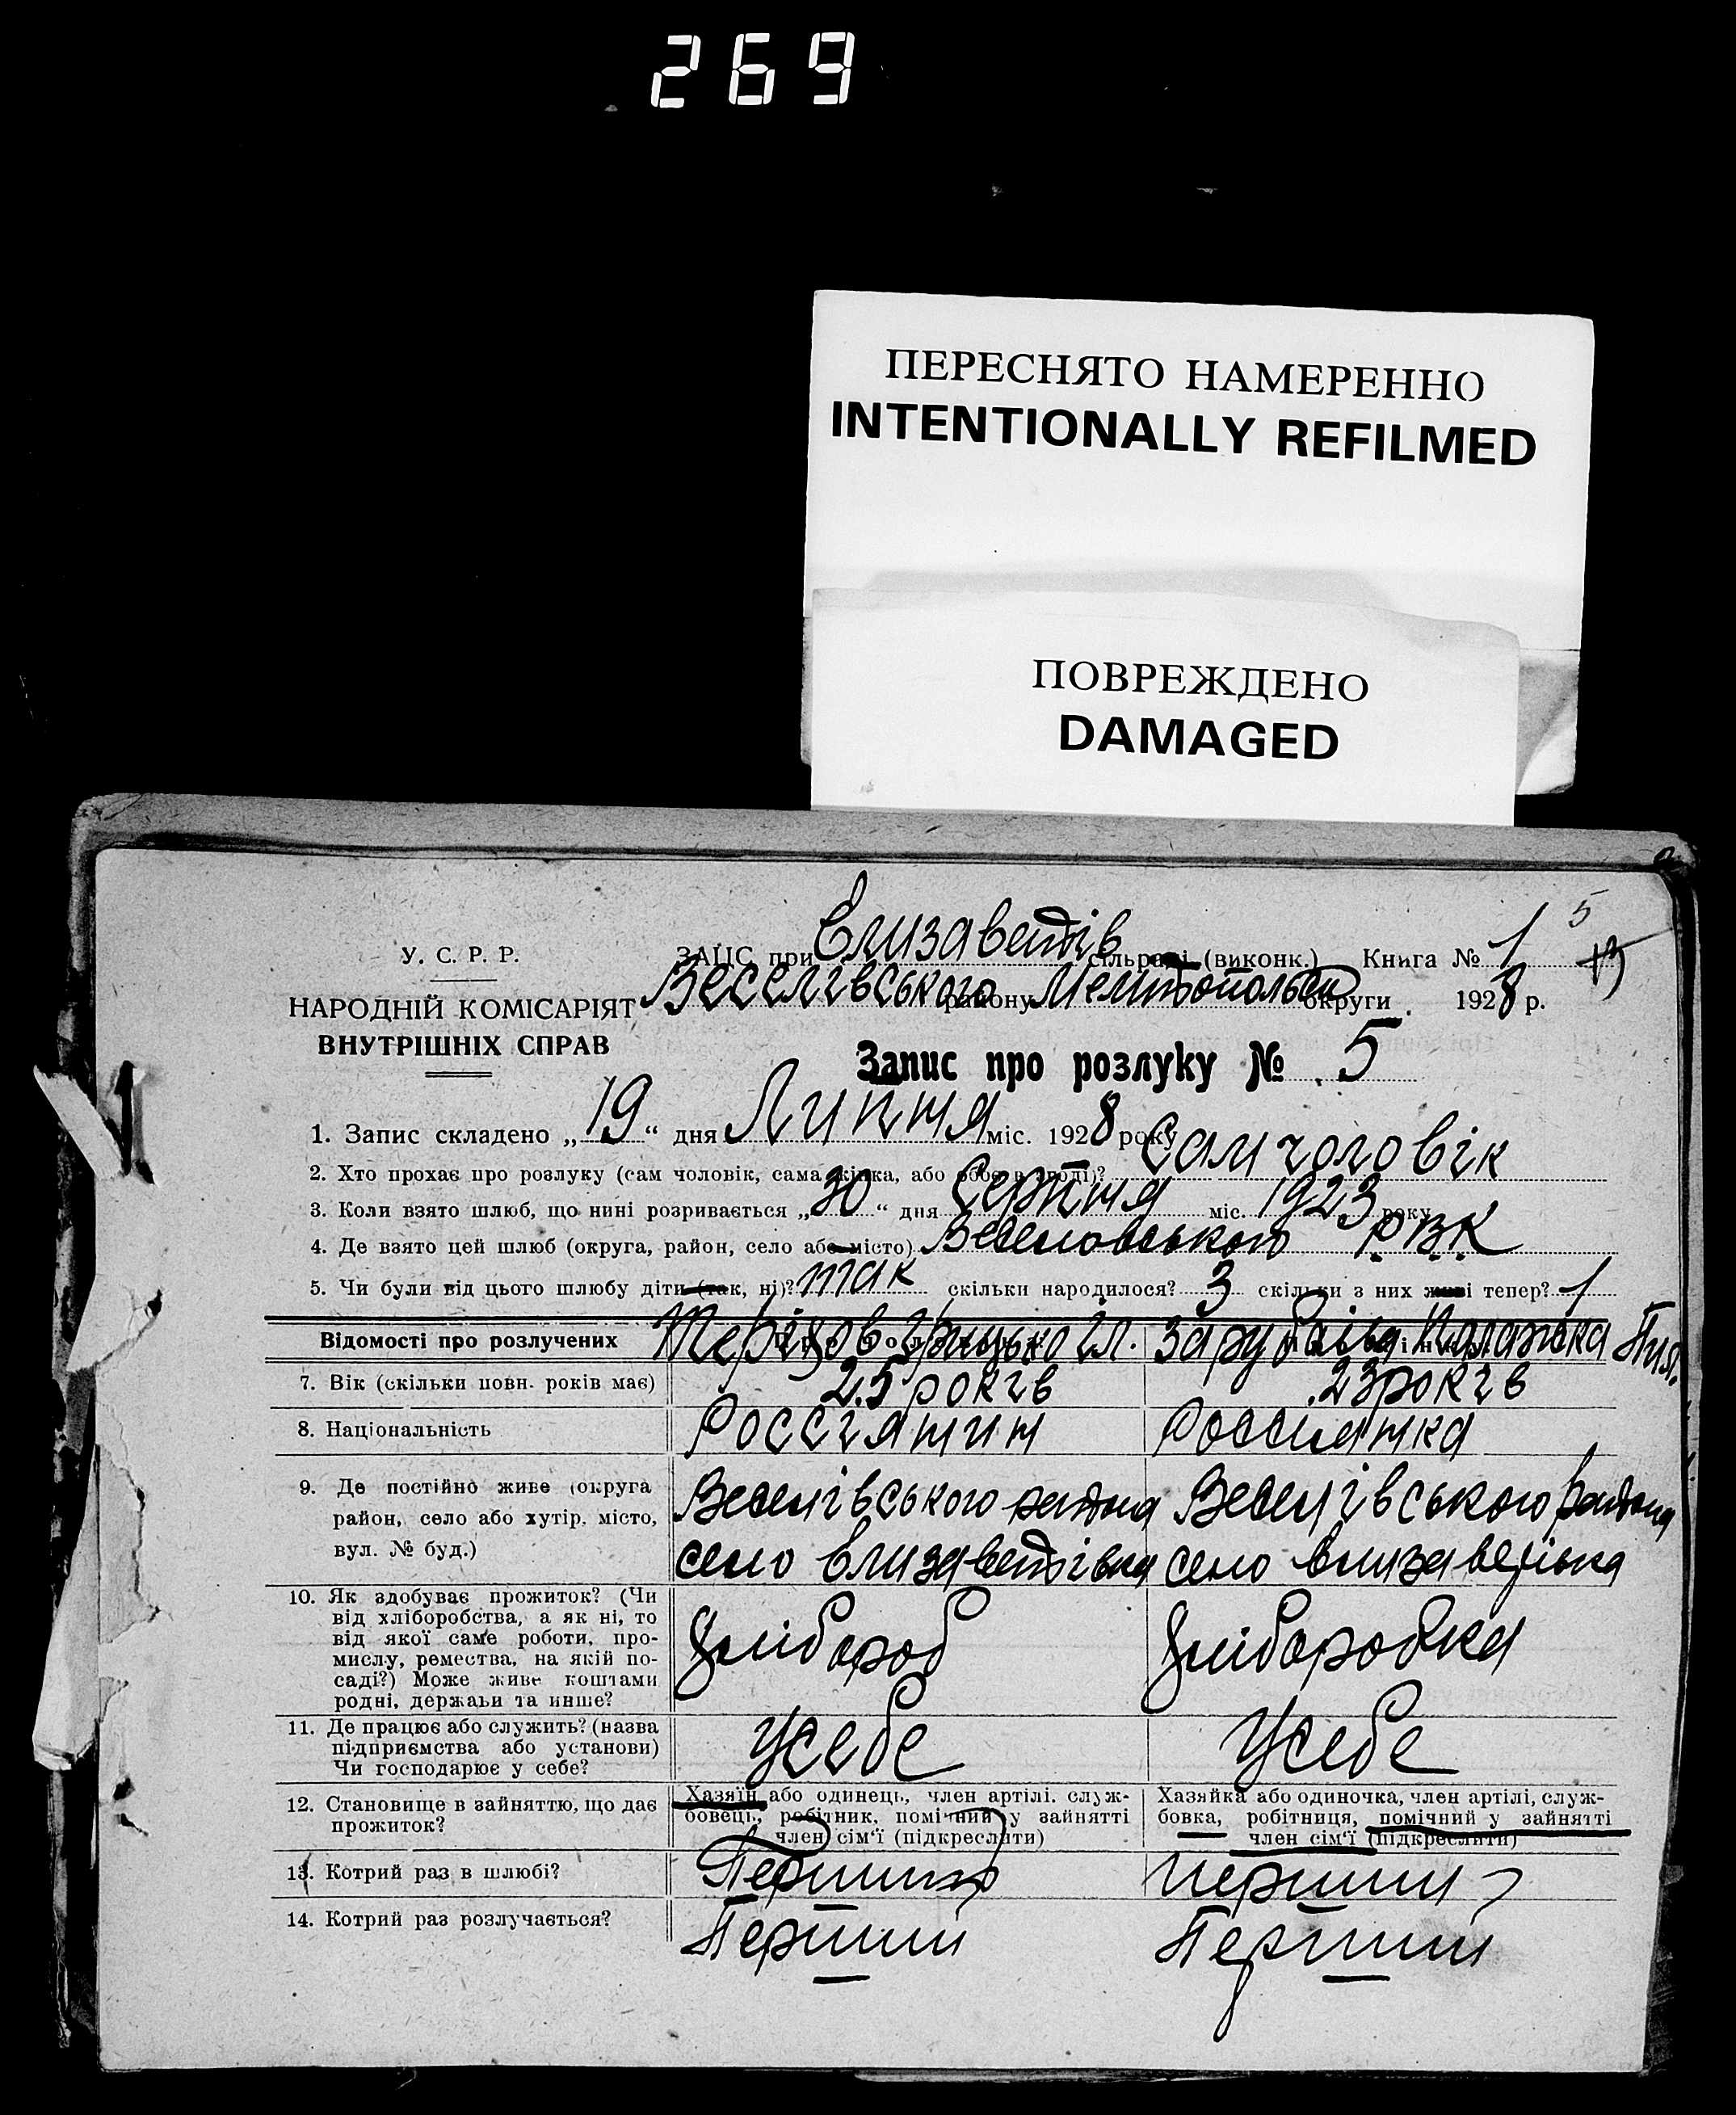 269
ПЕРЕСНЯТО НАМЕРЕННО
INTENTIONALLY REFILMED
ПОВРЕЖДЕНО
DAMAGED
5
У. С. Р. Р.
ЗАЦС при Елизаветів сільраді (виконк.) Книга № 1
НАРОДНІЙ КОМІСАРІЯТ
ВНУТРІШНІХ СПРАВ
Веселівського району Мелітопольськ округи. 1928 р.
Запис про розлуку № 5
1. Запис складено „19“ дня Липня міс. 1928 року
2. Хто прохає про розлуку (сам чоловік, сама жінка, або обоє в згоді)? Сам чоловік
3. Коли взято шлюб, що нині розривається „30“ дня Серпня міс. 1923 року
4. Де взято цей шлюб (округа, район, село або місто) Веселовського РВК
5. Чи були від цього шлюбу діти (так, ні)? так скільки народилося? 3 скільки з них живі тепер? 1
Відомості про розлучених Грицько Іл. Палажка Пил.
7. Вік (скільки повн. років має) 25 років 23 років
8. Національність Россіянин Россиянка
9. Де постійно живе (округа район, село або хутір, місто, вул. № буд.)
Веселівського района село Елизаветівка
Веселівського района село Елизаветівка
10. Як здобуває прожиток? (Чи
від хліборобства, а як ні, то
від якої саме роботи, про-
мислу, ремества, на якій по-
саді?) Може живе коштами
родні, держави та инше?
Хлібороб Хліборобка
11. Де працює або служить? (назва
підприємства або установи)
Чи господарює у себе?
Усебе Усебе
12. Становище в зайняттю, що дає
прожиток?
Хазяїн або одинець, член артілі, служ-
бовець, робітник, помічний у зайнятті
член сім'ї (підкреслити)
Хазяйка або одиночка, член артілі, служ-
бовка, робітниця, помічний у зайнятті
член сім'ї (підкреслити)
13. Котрий раз в шлюбі? Перший перший
14. Котрий раз розлучається? Перший Перший